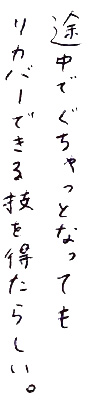 途中でぐちゃっとなっても
リカバーできる技を得たらしい。